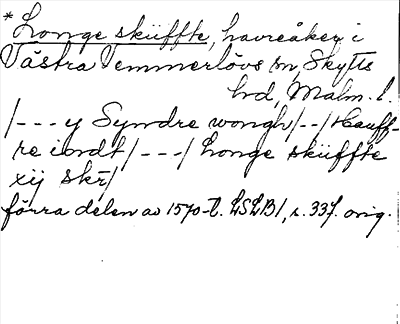 *Longe skiiffte, havreåker i
Västra Vemmerlövs sn, Skytts
hd, Malm. l.
/---y Syndre wongh/--/Hauff-
re iordt/---/Longe skiiffte
xij skr̄/
förra delen av 1570-t. LSLB1, s. 337. orig.